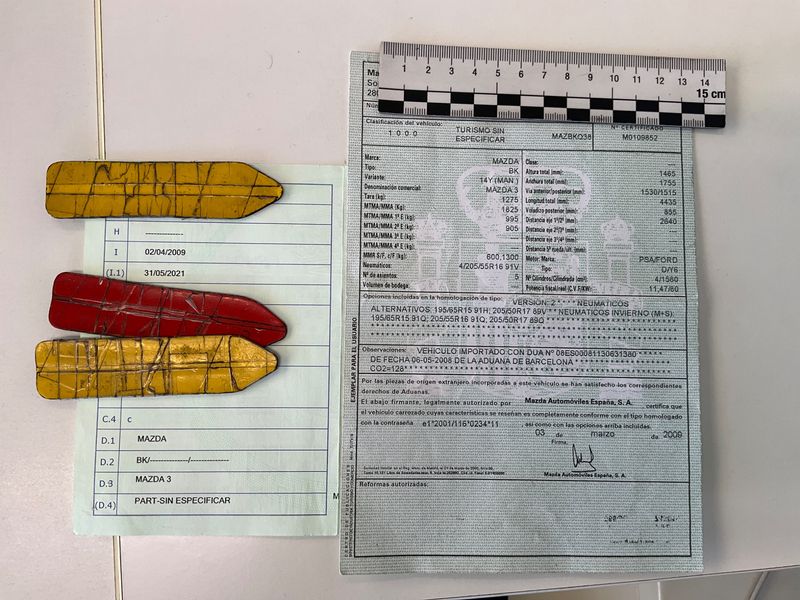 1 2 3 4 5 6 7 8 9 10 11 12 13 14
15 cm
Clasificación del vehículo:
Nº CERTIFICADO
1 0 0 0 TURISMO SIN ESPECIFICAR MAZBKQ38 M0109852
Marca: MAZDA
Tipo: BK
Variante: 14Y (MAN )
Denominación comercial: MAZDA 3
Tara (kg): 1275
MTMA/MMA (kg): 1825
MTMA/MMA 1º E (kg): 995
MTMA/MMA 2º E (kg): 905
MTMA/MMA 3º E (kg): ---
MTMA/MMA 4º E (kg): ---
MMR S/F, c/F (kg): 600,1300
Neumáticos: 4/205/55R16 91V
Nº de asientos: 5
Volumen de bodega: ---
Clase: ---
Altura total (mm): 1465
Anchura total (mm): 1755
Vía anterior/posterior (mm): 1530/1515
Longitud total (mm): 4435
Voladizo posterior (mm): 855
Distancia eje 1º/2º (mm): 2640
Distancia eje 2º/3º (mm): ---
Distancia eje 3º/4º (mm): ---
Motor: Marca: PSA/FORD
Tipo: D/Y6
Nº Cilindros/Cilindrada (cm³): 4/1560
Potencia fiscal/real (C.V.F/kW): 11,47/80
Opciones incluidas en la homologación de tipo: VERSION: 2 * * * *NEUMATICOS
ALTERNATIVOS: 195/65R15 91H; 205/50R17 89V * *NEUMATICOS INVIERNO (M+S):
195/65R15 91Q; 205/55R16 91Q; 205/50R17 89Q
Observaciones: VEHICULO IMPORTADO CON DUA Nº 08ES00081130631380
DE FECHA 06-05-2008 DE LA ADUANA DE BARCELONA
CO2=128
Por las piezas de origen extranjero incorporadas a este vehículo se han satisfecho los correspondientes
derechos de Aduanas.
El abajo firmante, legalmente autorizado por Mazda Automóviles España, S.A. certifica que
el vehículo carrozado cuyas características se reseñan es completamente conforme con el tipo homologado
con la contraseña e1*2001/116*0234*11 así como con las opciones arriba incluidas.
03 de marzo da 2009
Firma,
Mazda Automóviles España, S. A.
Reformas autorizadas:
EJEMPLAR PARA EL USUARIO
CENTRO DE PUBLICACIONES
H -------------
I 02/04/2009
(I.1) 31/05/2021
C.4 c
D.1 MAZDA
D.2 BK/-------------/-------------
D.3 MAZDA 3
(D.4) PART-SIN ESPECIFICAR
M